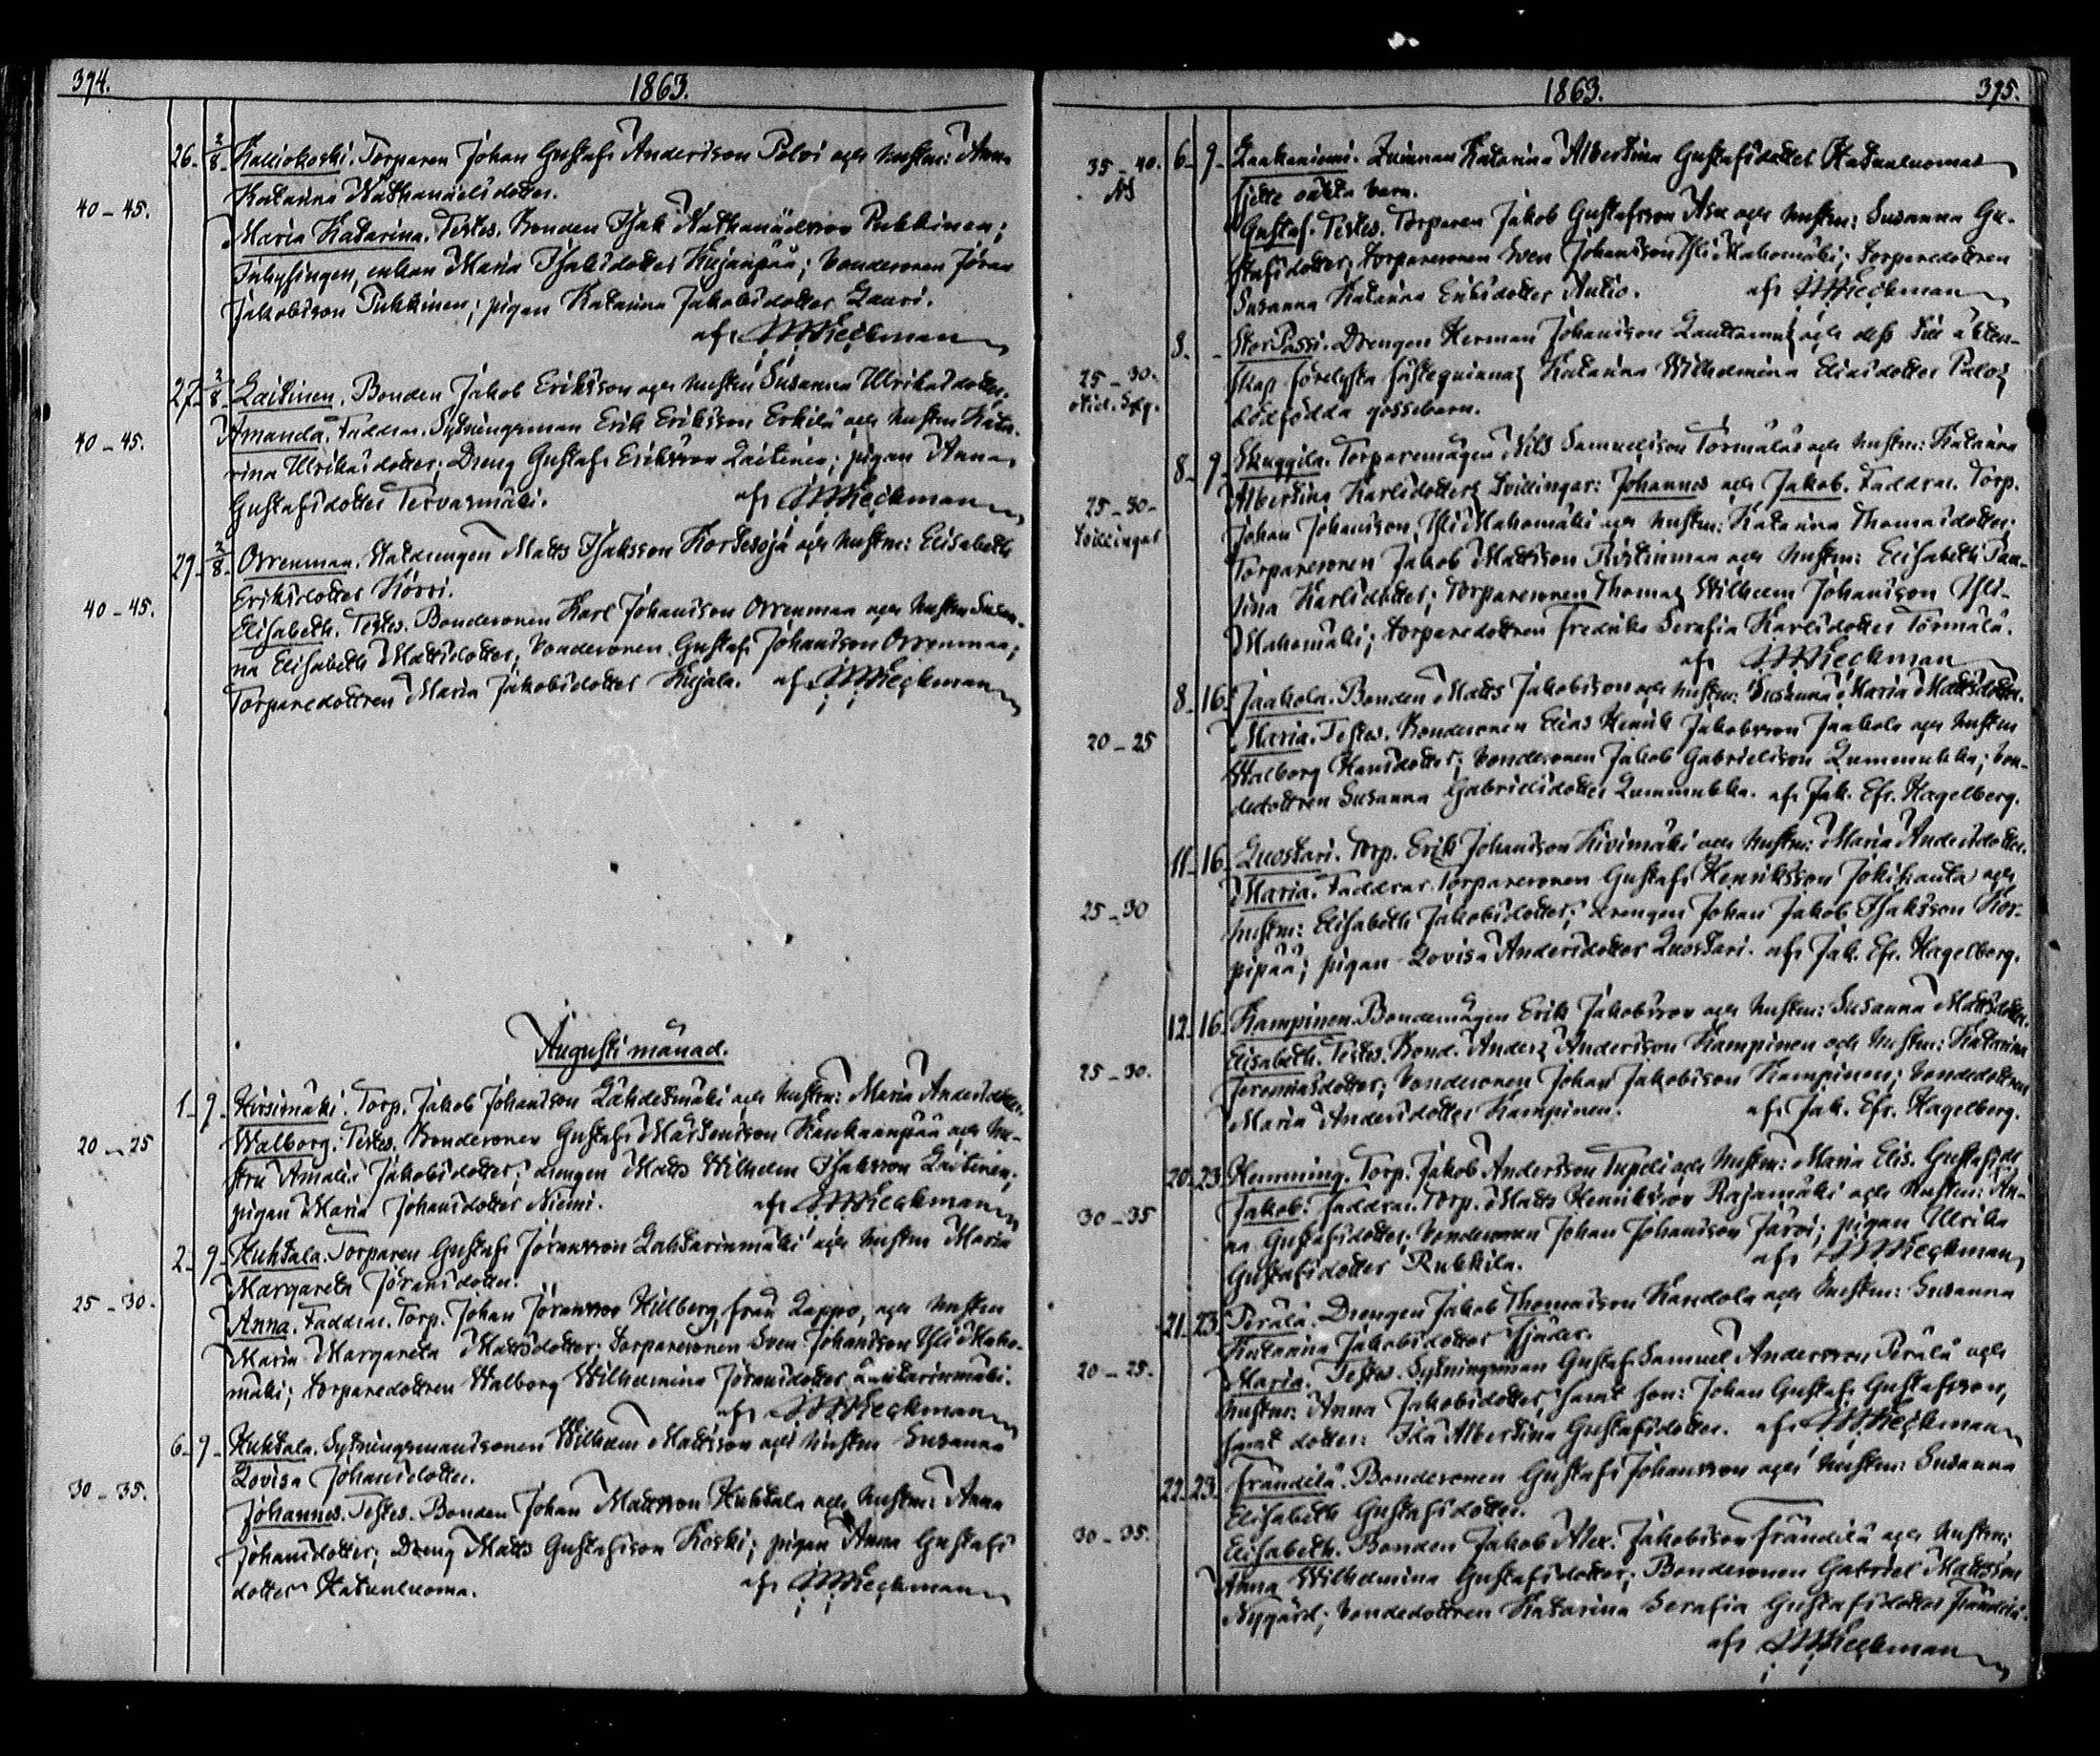 394. 1863.
26. 2/8. Kalliokoski. Torparen Johan Gustaf Andersson Polvi och hustru: Anna
Katarina Nathanaelsdotter.
40-45.
Maria Katarina. Testes. Bonden Isak Nathanaelsson Pukkinen;
Inhysingen, enkan Maria Isaksdotter Kujanpää; bondesonen Jöran
Jakobsson Pukkinen; pigan Katarina Jakobsdotter Lauri.
af Wieckman
27. 2/8. Laitinen. Bonden Jakob Eriksson och hustru Susanna Ulrika dotter.
40-45.
Amanda. Faddrar. Sytningsman Erik Eriksson Erkilä och hustru Kata-
rina Ulrika dotter; Dreng Gustaf Eriksson Laitinen; pigan Anna
Gustafsdotter Tervasmäki. af Wieckman
29. 2/8. Orrenmaa. Matts Isaksson Kortesoja och hustru: Elisabeth
Eriksdotter Körvi.
40-45.
Elisabeth. Testes. Bondesonen Karl Johansson Orrenmaa och hustru Susan-
na Elisabeth Mattsdotter; bondesonen Gustaf Johansson Orrenmaa;
Torparedottren Maria Jakobsdotter Kujala. af Wieckman
Augusti månad.
1. 9. Hirsimäki. Torp. Jakob Johansson Lähdesmäki och hustru: Maria Andersdotter.
20-25
Walborg. Testes. Bondesonen Gustaf Mårtensson Kauhaanpää och hu-
stru Amalia Jakobsdotter; drengen Matts Wilhelm Isaksson Laitinen;
pigan Maria Johansdotter Niemi. af Wieckman
2. 9. Huhtala. Torparen Gustaf Jöransson Lahtarinmäki och hustru Maria
Margareta Jöransdotter.
25-30.
Anna. Faddrar. Torp. Johan Jöransson Hillberg, från Lappo, och hustru
Maria Margareta Mattsdotter; torparesonen Sven Johansson Yli Maho-
mäki; torparedottren Walborg Wilhelmina Jöransdotter Lahtarinmäki.
af Wieckman
6. 9. Huhtala. Sytningsmanssonen Wilhelm Mattsson och hustru Susanna
Lovisa Johansdotter.
30-35.
Johannes. Testes. Bonden Johan Mattsson Huhtala och hustru: Anna
Johansdotter; Dreng Matts Gustafsson Koski; pigan Anna Gustafs
dotter Katunluoma. af Wieckman
1863. 395.
35-40. 6. 9. Laakaniemi. Quinnan Katarina Albertina Gustafsdotter Katunluomas
fjette oäkta barn.
Gustaf. Testes. Torparen Jakob Gustafsson Asu och hustru: Susanna Gu-
stafsdotter; torparesonen Sven Johansson Yli Mahomäki; torparedottren
Susanna Katarina Eriksdotter Autio. af Wieckman
8. Stor Passi. Drengen Herman Johansson och dess till äkten-
25-30.
skap förelysta fästeqvinnas Katarina Wilhelmina Eliasdotter Palos
dödfödda gossebarn.
8. 9. Skuggila. Torparemågen Nils Samuelsson Törmäläs och hustru: Katarina
25-30-
Tvillingar
Albertina Karlsdotters tvillingar: Johannes och Jakob. Faddrar. Torp.
Johan Johansson Yli Mahomäki och hustru: Katarina Thomasdotter;
Torparesonen Jakob Mattsson Ristinmaa och hustru: Elisabeth Pau-
lina Karlsdotter; Torparesonen Thomas Wilhelm Johansson Yli-
Mahomäki; torparedottren Fredrika Serafia Karlsdotter Törmälä.
af Wieckman
8. 16. Jaakola. Bonden Matts Jakobsson och hustru: Susanna Maria Mattsdotter.
20-25
Maria. Testes. Bondesonen Elias Henrik Jakobsson Jaakola och hustru
Walborg Hansdotter; bondesonen Jakob Gabrielsson Lummukka; bon-
dedottren Susanna Gabrielsdotter Lummukka. af Jak. Efr. Hagelberg.
11. 16. Luostari. Torp. Erik Johansson Kivimäki och hustru: Maria Andersdotter.
25-30
Maria. Faddrar. Torparesonen Gustaf Henriksson Jokihanta och
hustru: Elisabeth Jakobsdotter; drengen Johan Jakob Isaksson Kor-
pipää; pigan Lovisa Andersdotter Luostari. af Jak. Efr. Hagelberg.
12. 16. Kampinen. Bondemågen Erik Jakobsson och hustru: Susanna Mattsdotter.
25-30.
Elisabeth. Testes. Bond. Anders Andersson Kampinen och hustru: Katarina
Jeremiasdotter; bondesonen Johan Jakobsson Kampinen; bondedottren
Maria Andersdotter Kampinen. af Jak. Efr. Hagelberg.
20. 23. Hemming. Torp. Jakob Andersson Tupeli och hustru: Maria Elis. Gustafsdr
30-35
Jakob. Faddrar. Torp. Matts Henriksson Rajamäki och hustru: An-
na Gustafsdotter; bondesonen Johan Johansson Järvi; pigan Ulrika
Gustafsdotter Rukkila. af Wieckman
21. 23. Perälä. Drengen Jakob Thomasson Kandola och hustru: Susanna
Katarina Jakobsdotter Tjäder.
20-25.
Maria. Testes. Sytningsman Gustaf Samuel Andersson Perälä och
hustru: Anna Jakobsdotter, samt son: Johan Gustaf Gustafsson,
samt dotter: Ida Albertina Gustafsdotter. af Wieckman
22. 23. Frändilä. Bondesonen Gustaf Johansson och hustru: Susanna
Elisabeth Gustafsdotter.
30-35.
Elisabeth. Bonden Jakob Alex. Jakobsson Frändilä och hustru:
Anna Wilhelmina Gustafsdotter; Bondesonen Gabriel Mattsson
Nygård; bondedottren Katarina Serafia Gustafsdotter Frändilä.
af Wieckman